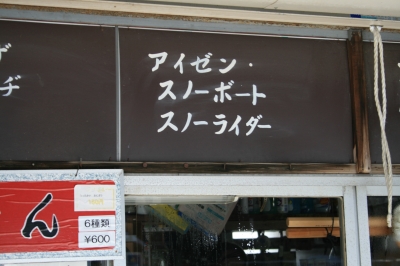 アイゼン・
スノーボート
スノーライダー
ん
6種類
¥600